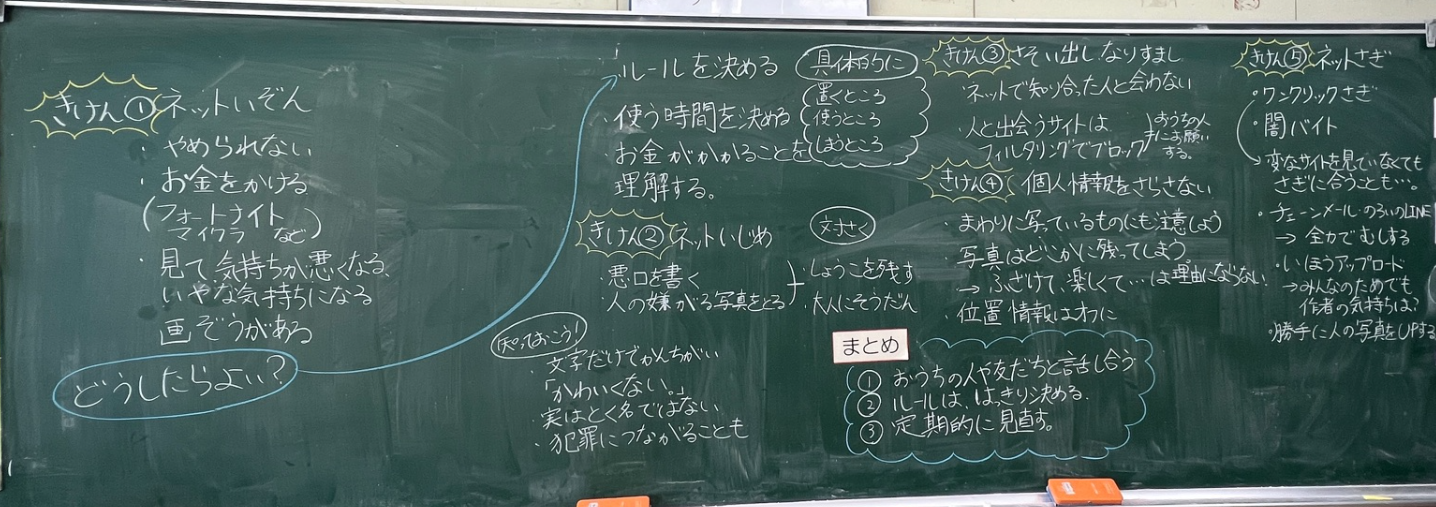 きけん① ネットいぞん
・やめられない
・お金をかける
(フォートナイト
マイクラ など)
・見て気持ちが悪くなる、
いやな気持ちになる
画ぞうがある
どうしたらよい?
ルールを決める
・使う時間を決める
・お金がかかることを
理解する。
具体的に
置くところ
使うところ
しまうところ
きけん② ネットいじめ
・悪口を書く
・人の嫌がる写真をとる
対さく
・しょうこを残す
・大人にそうだん
知っておこう!
・文字だけでかんちがい
「かわいくない。」
・実はとく名ではない
・犯罪につながることも
きけん③ さそい出しなりすまし
・ネットで知り合った人と会わない
・人と出会うサイトは
フィルタリングでブロック
おうちの人
にお願い
する。
きけん④ 個人情報をさらさない
・まわりに写っているものにも注意しよう
・写真はどこかに残ってしまう。
→ ふざけて、楽しくて…は理由にならない
・位置情報はオフに
まとめ
① おうちの人や友だちと話し合う
② ルールは、はっきり決める。
③ 定期的に見直す。
きけん⑤ ネットさぎ
・ワンクリックさぎ
・闇バイト
→変なサイトを見ていなくても
さぎに合うことも…。
・チェーンメール・のろいのLINE
→ 全力でむしする
・いほうアップロード
→みんなのためでも
作者の気持ちは?
・勝手に人の写真をUPする